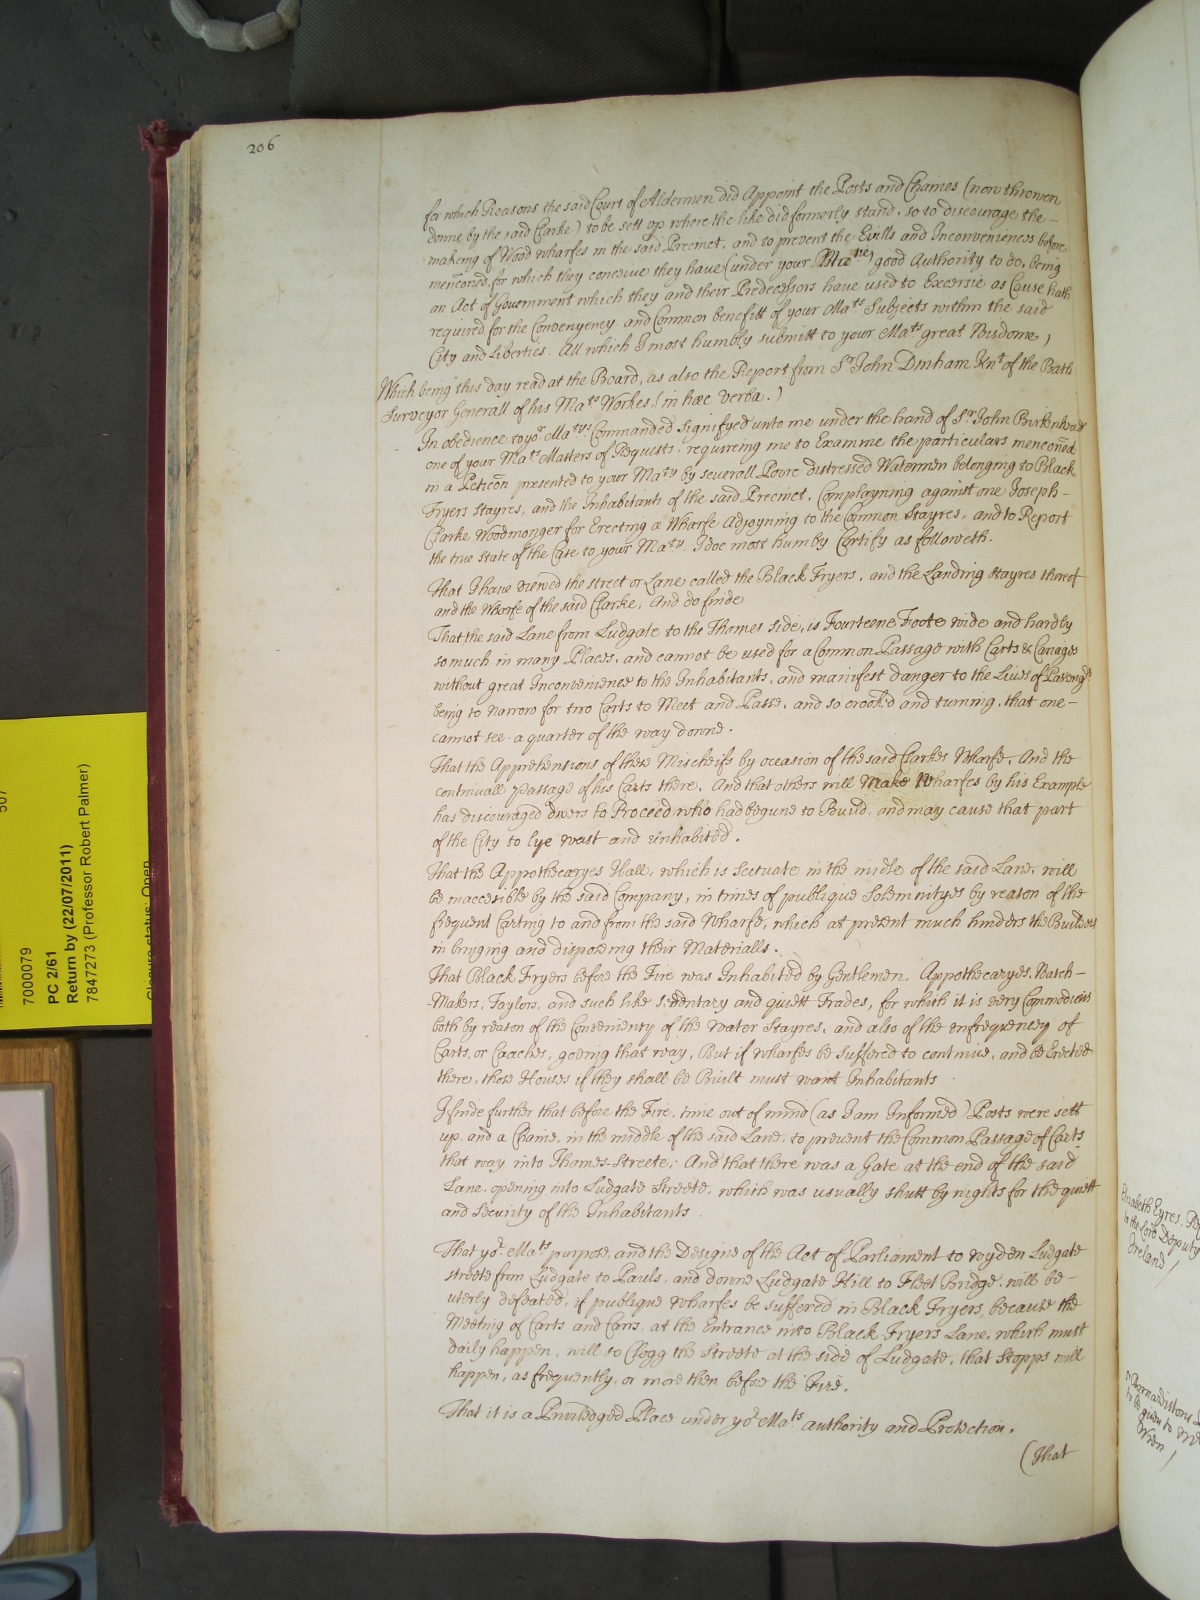 206
for which Reasons the said Court of Aldermen did Appoint the Posts and Chaines (now throwen
downe by the said Clarke) to be sett up where the like did formerly stand, so to discourage the -
makeing of Wood wharfes in the said Precinct, and to prevent the Evills and Inconveniencies before
mencõned, for which they conceive they have (under your Matie) good Authority to do, being
an Act of Government which they and their Predecessors have used to Excersie as Cause hath
required for the Convenyency and Common benefitt of your Mats Subjects within the said
City and Liberties. All which I most humbly submitt to your Mats great Wisdome,)
Which being this day read at the Board, as also the Report from Sr John Denham Knt of the Bath
Surveyor Generall of his Mats Workes. (in hæc verba.)
In obedience to yor Matys Commanded signifyed unto me under the hand of Sr John Birkenhead
one of your Mats Masters of Requests, requireing me to Examine the particulars mencõned
in a Peticõn presented to your Maty by severall Poore distressed Watermen belonging to Black
Fryers Stayres, and the Inhabitants of the said Precinct, Complayning against one Joseph -
Clarke Woodmonger for Erecting a Wharfe Adjoyning to the Common Stayres, and to Report
the true State of the Case to your Maty. I doe most humbly Certify as followeth.
That I have viewed the street or Lane called the Black Fryers, and the Landing Stayres thereof
and the Wharfe of the said Clarke, And do finde
That the said Lane from Ludgate to the Thames side, is Fourteene Foote wide and hardly
so much in many Places, and cannot be used for a Common Passage with Carts & Cariages
without great Inconvenience to the Inhabitants, and manifest danger to the Lives of Passengrs
being to narrow for two Carts to Meet and Passe, and so crooked and turning, that one -
cannot see a quarter of the way downe.
That the Apprehensions of these Mischeifs by occasion of the said Clarkes Wharfe, And the
continuall passage of his Carts there, And that others will Make Wharfes by his Example
has discouraged divers to Proceed who had begune to Build, and may cause that part
of the City to lye wast and unhabited.
That the Appothecaryes Hall, which is Scituate in the midle of the said Lane, will
be inaccessible by the said Company, in times of publique Solemnityes by reason of the
frequent Carting to and from the said Wharfe, which at present much hinders the Builders
in bringing and disposeing their Materialls.
That Black Fryers before the Fire was Inhabited by Gentlemen, Appothecaryes, Watch -
-Makers, Taylors, and such like sedentary and quiett Trades, for which it is very Commodious
both by reason of the Conveniency of the water Stayres, and also of the enfrequency of
Carts, or Coaches, goeing that way, But if wharfes be suffered to continue, and be Erected
there, those Houses if they shall be Built must want Inhabitants
I finde further that before the Fire, time out of mind (as I am Informed) Posts were sett
up, and a Chaine, in the middle of the said Lane, to prevent the Common Passage of Carts
that way into Thames-Streete; And that there was a Gate at the end of the said
Lane, opening into Ludgate Streete, which was usually shutt by nights for the quiett
and Security of the Inhabitants.
That yor Mats purpose, and the Designe of the Act of Parliament to wyden Ludgate
streete from Ludgate to Pauls, and downe Ludgate Hill to Fleet Bridge, will be -
uterly defeated, if publique wharfes be suffered in Black Fryers, because the
Meeting of Carts and Carrs, at the Entrance into Black Fryers Lane, which must
daily happen, will so Clogg the Streete at the side of Ludgate, that Stopps will
happen, as frequently, or more then before the Fire.
That it is a Priviledged Place under yor Mats authority and Protection.
(That
Elizabeth Eyres
to the Lord Deputy
Ireland /
to be given to
7000079
PC 2/61
Return by (22/07/2011)
7847273 (Professor Robert Palmer)
Closure status: Open
507